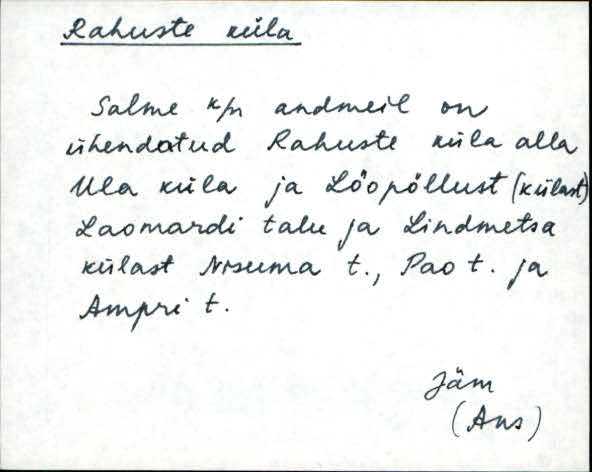 Rahuste küla
Salme k/n andmeil on
ühendatud Rahuste küla alla
Ula küla ja Lõopõllust (külast)
Laomardi talu ja Lindmetsa
külast t., Pao t. ja
Ampri t.
Jäm
(Ans)